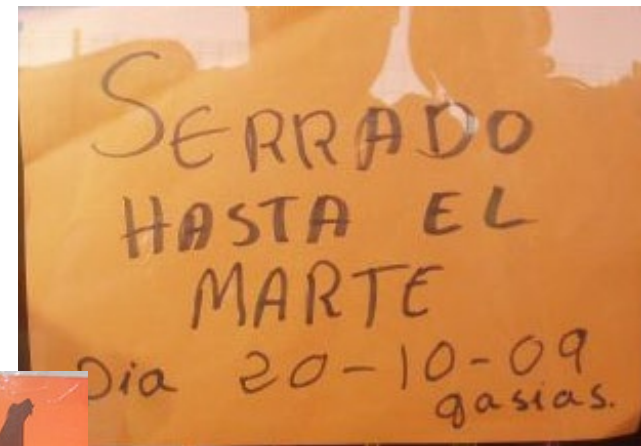 SERRADO
HASTA EL
MARTE
Dia 20-10-09
gasias.